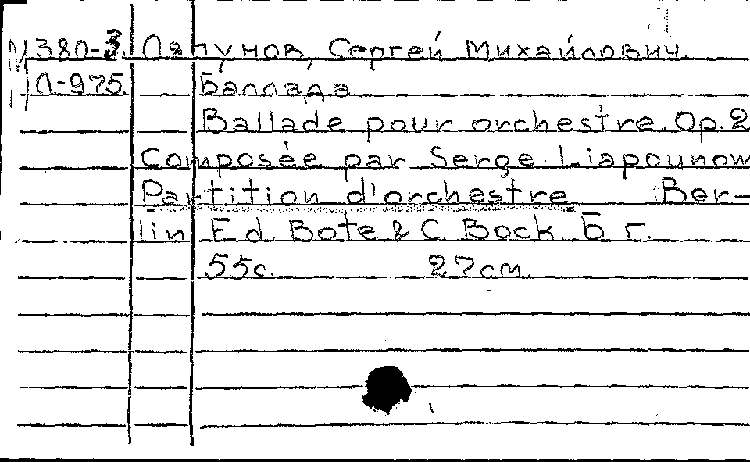 М380-3 Ляпунов, Сергей Михайлович.
Л-975 Баллада
Ballade pour orchestre. Op. 2
Composée par Serge Liapounow
Partition d'orchestre Ber-
lin Ed. Bote & C Bock Б г.
55с. 27см.